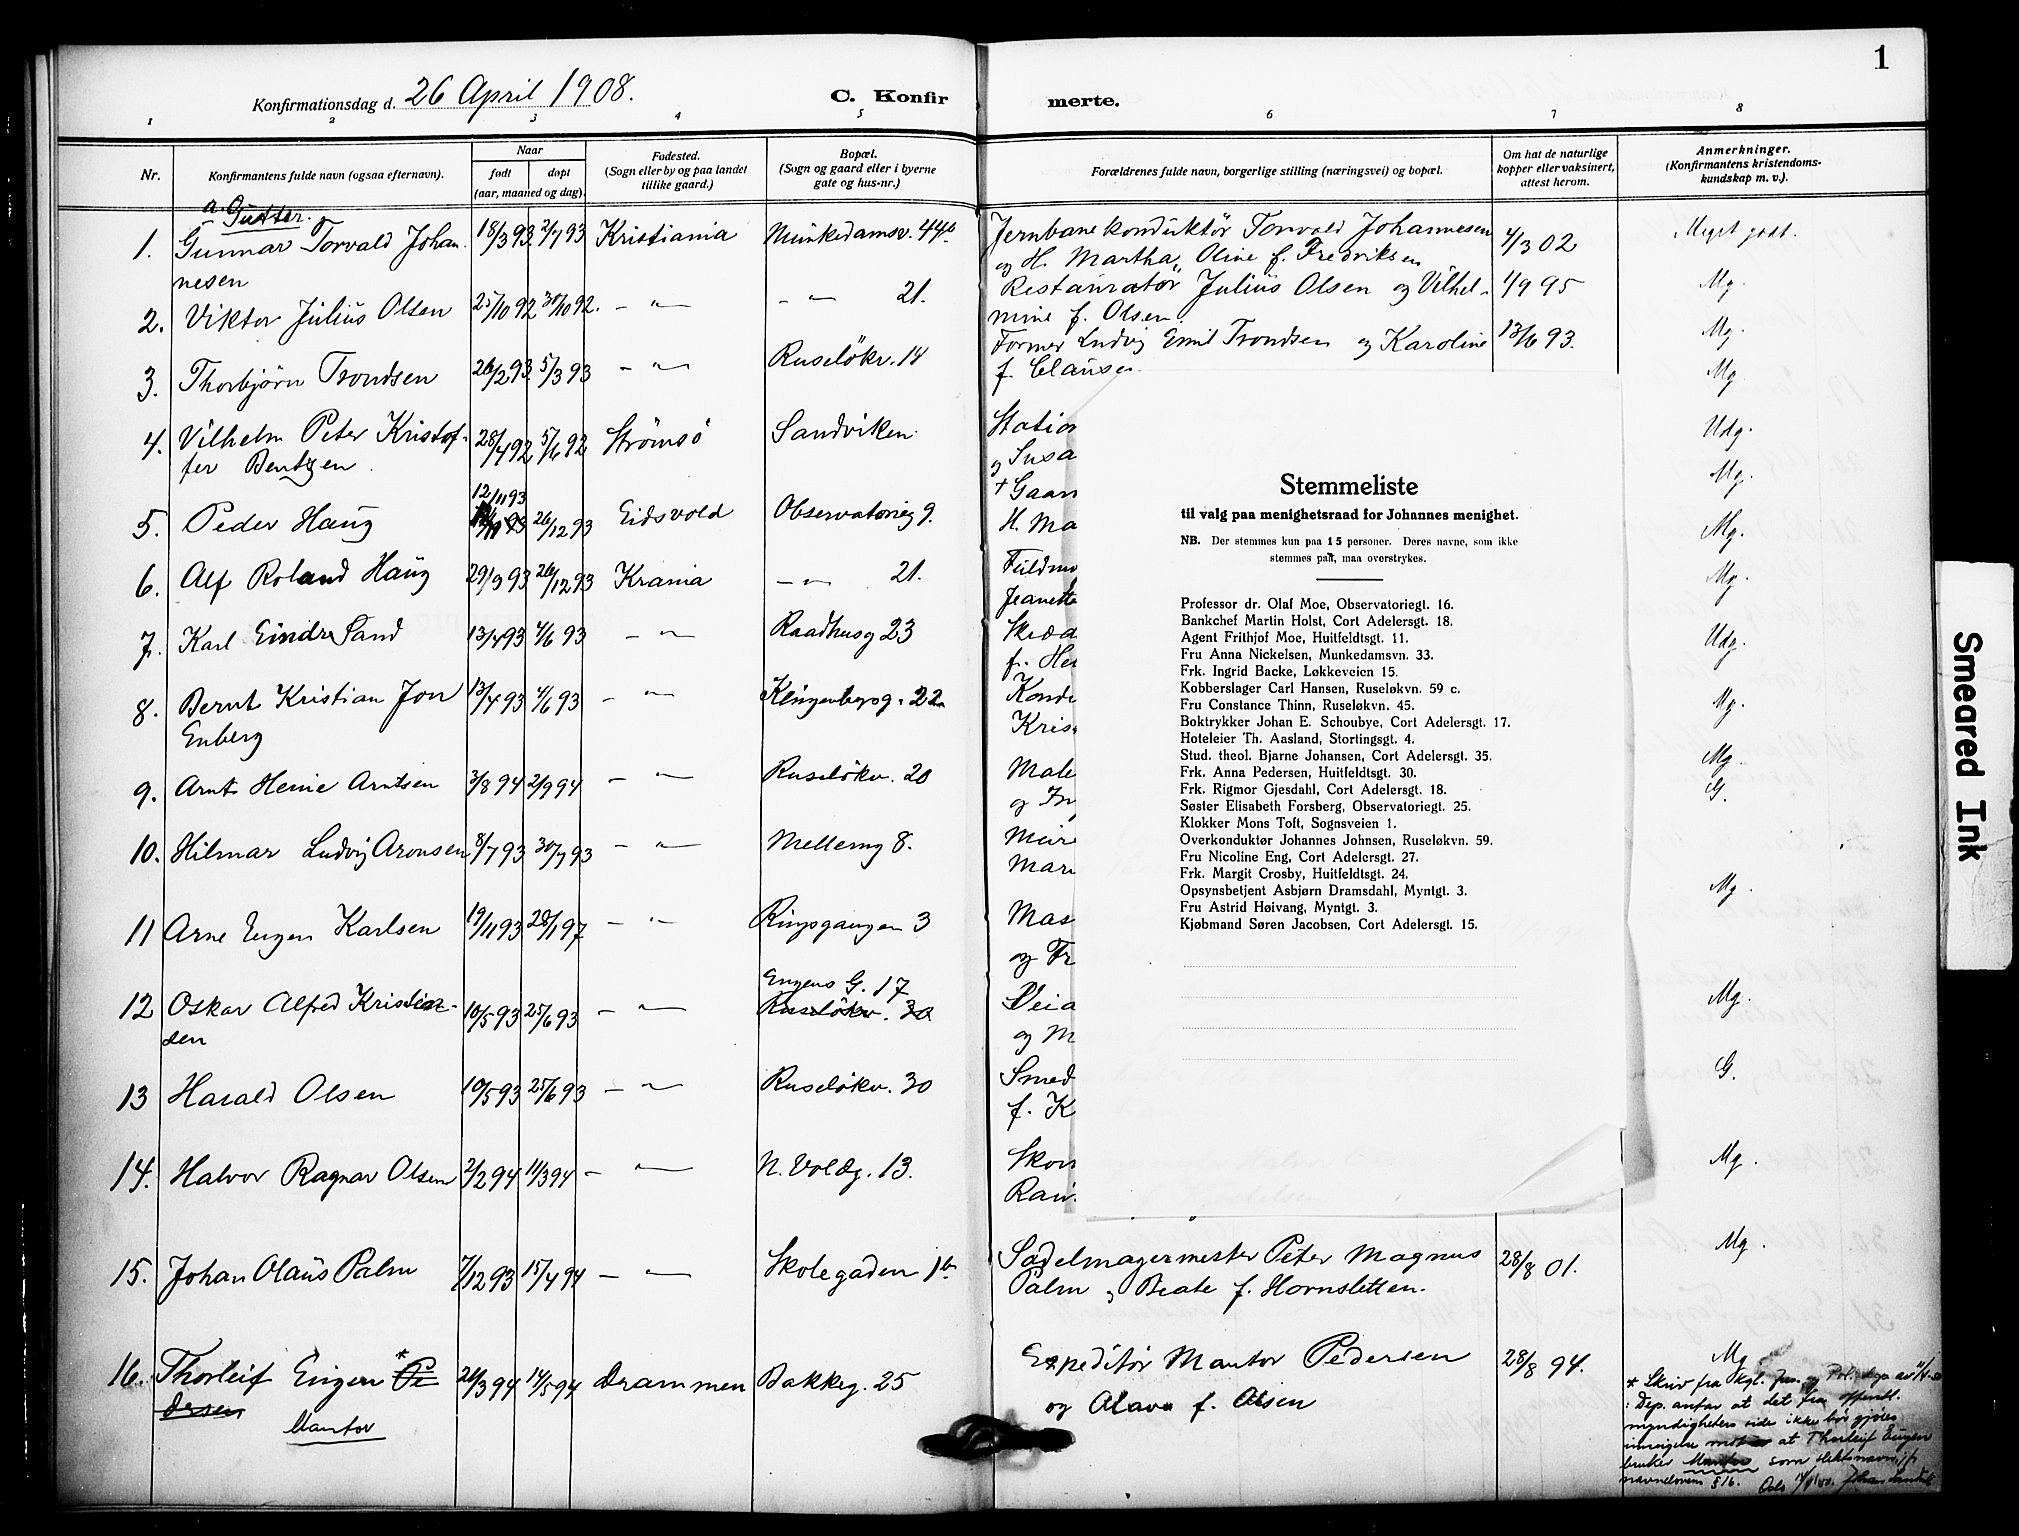 1
Konfirmationsdag d. 26 April 1908.
C. Konfir
merte.
1 2 3 4 5 6 7 8
Nr.
Konfirmantens fulde navn (ogsaa efternavn).
Naar
født døpt
(aar, maaned og dag).
Fødested.
(Sogn eller by og paa landet
tillike gaard.)
Bopæl.
(Sogn og gaard eller i byerne
gate og hus-nr.)
Forældrenes fulde navn, borgerlige stilling (næringsvei) og bopæl.
Om hat de naturlige
kopper eller vaksinert,
attest herom.
Anmerkninger.
(Konfirmantens kristendoms-
kundskap m. v.).
a. Gutter.
1. Gunnar Torvald Johan- 18/3 93 2/7 93 Kristiania Munkedamsv. 44b Jernbanekonduktör Torvald Johannesen 4/3 02 Meget godt.
nesen og H. Martha Oline f. Fredriksen
2. Viktor Julius Olsen 25/10 92 30/10 92. - " - - " - 21. Restauratör Julius Olsen og Vilhel- 1/9 95 Mg.
mine f. Olsen.
3. Thorbjörn Trondsen 26/2 93. 5/3 93 - " - Ruselökv. 14 Former Ludvig Emil Trondsen og Karoline 13/6 93. Mg.
f. Clausen Mg.
4. Vilhelm Peter Kristof- 28/4 92 5/6 92 Strömsö Sandviken Station Udg.
fer Bentzen og Susa Mg.
+ Gaar
12/11 93
5. Peder Haug 26/12 93 Eidsvold Observatorieg 9. H. Ma Mg.
6. Alf Roland Haug 29/3 93 26/12 93 Krania - " - 21. Fuldm Mg.
Jeanette
7. Karl Eindre Sand 13/4 93 4/6 93 - " - Raadhusg 23 Skræd Udg.
f. He
8. Bernt Kristian Jon 13/4 93 4/6 93 - " - Klingenbergg. 22 Kond Mg.
Enberg Kris
9. Arnt Heine Arntsen 3/8 94 2/9 94 - " - Ruselökv. 20 Male Mg.
og In G.
10. Hilmar Ludvig Aronsen 8/7 93 30/7 93 - " - Mellemg 8. Mure
Mari Mg.
11 Arne Eugen Karlsen 19/11 93 28/1 97 - " - Ringsgangen 3 Mas
og Fr
Engens G. 17
12 Oskar Alfred Kristian- 10/5 93 25/6 93 - " - Ruselökv. 30 Veia Mg.
sen og M
13 Harald Olsen 10/5 93 25/6 93 - " - Ruselökv. 30 Smed G.
f. K
14. Halvor Ragnar Olsen 2/2 94 11/3 94 - " - N. Voldg. 13. Skom Mg.
Ran
15. Johan Olaus Palm 7/12 93 15/4 94 - " - Skolegaden 1b Sadelmagermester Peter Magnus 28/8 01. Mg.
Palm og Beate f. Hornsletten.
16. Thorleif Eugen * Pe 26/3 94 14/5 94 Drammen Bakkeg. 25 Expeditör Mantor Pedersen 28/8 94. Mg
dersen og Olava f. Olsen
Mantor
* Skriv fra Kgl. Jus. og Pol. dep. av
: Dep. anfar at det fra offentl.
myndigheters side ikke bör gjöres
innsigelse mot at Thorleif Eugen
bruker Mantor som slektsnavn, jfr
navnelovens § 16. Oslo
Stemmeliste
til valg paa menighetsraad for Johannes menighet.
NB. Der stemmes kun paa 15 personer. Deres navne, som ikke
stemmes paa, maa overstrykes.
Professor dr. Olaf Moe, Observatoriegt. 16.
Bankchef Martin Holst, Cort Adelersgt. 18.
Agent Frithjof Moe, Huitfeldtsgt. 11.
Fru Anna Nickelsen, Munkedamsvn. 33.
Frk. Ingrid Backe, Løkkeveien 15.
Kobberslager Carl Hansen, Ruseløkvn. 59 c.
Fru Constance Thinn, Ruseløkvn. 45.
Boktrykker Johan E. Schoubye, Cort Adelersgt. 17.
Hoteleier Th. Aasland, Stortingsgt. 4.
Stud. theol. Bjarne Johansen, Cort Adelersgt. 35.
Frk. Anna Pedersen, Huitfeldtsgt. 30.
Frk. Rigmor Gjesdahl, Cort Adelersgt. 18.
Søster Elisabeth Forsberg, Observatoriegt. 25.
Klokker Mons Toft, Sognsveien 1.
Overkonduktør Johannes Johnsen, Ruseløkvn. 59.
Fru Nicoline Eng, Cort Adelersgt. 27.
Frk. Margit Crosby, Huitfeldtsgt. 24.
Opsynsbetjent Asbjørn Dramsdahl, Myntgt. 3.
Fru Astrid Høivang, Myntgt. 3.
Kjøbmand Søren Jacobsen, Cort Adelersgt. 15.
Smeared Ink